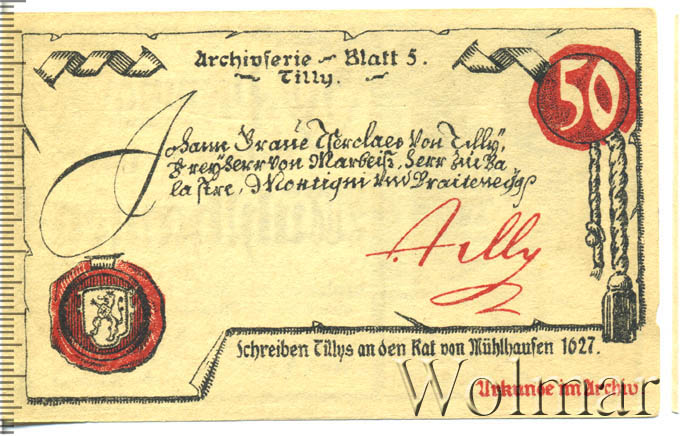 Archivserie - Blatt 5.
~ Tilly. ~
50
Johann Graue Tserclaes von Tilly,
Freyherr von Marbeiß, Herr zu Ba
lastre, Montigni und Braitenegg
Tilly
Schreiben Tillys an den Rat von Mühlhausen 1627.
Urkunde im Archiv
Wolmar